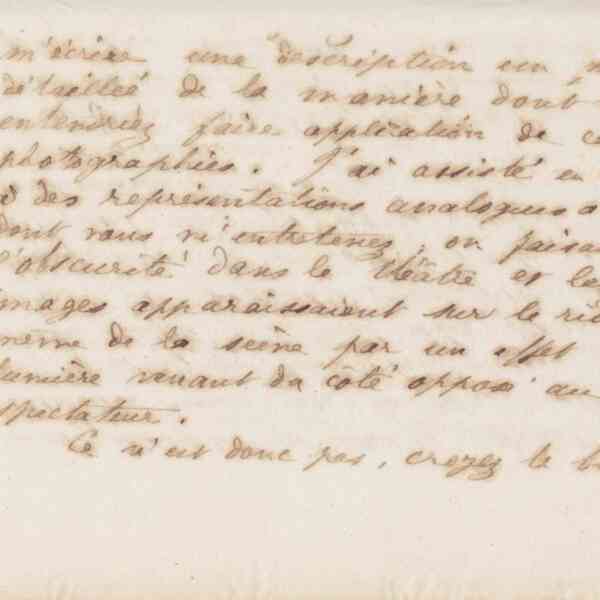 m'écrire une description un
détaillée de la manière dont
entendriez faire application de ce
photographies. J'ai assisté en
à des représentations analogues a
dont vous m'entretenez, on faisai
l'obscurité dans le théâtre et le
images apparaissaient sur le rid
même de la scène par un effet
lumière venant du côté opposé au
spectateur.
Ce n'est donc pas, croyez le b